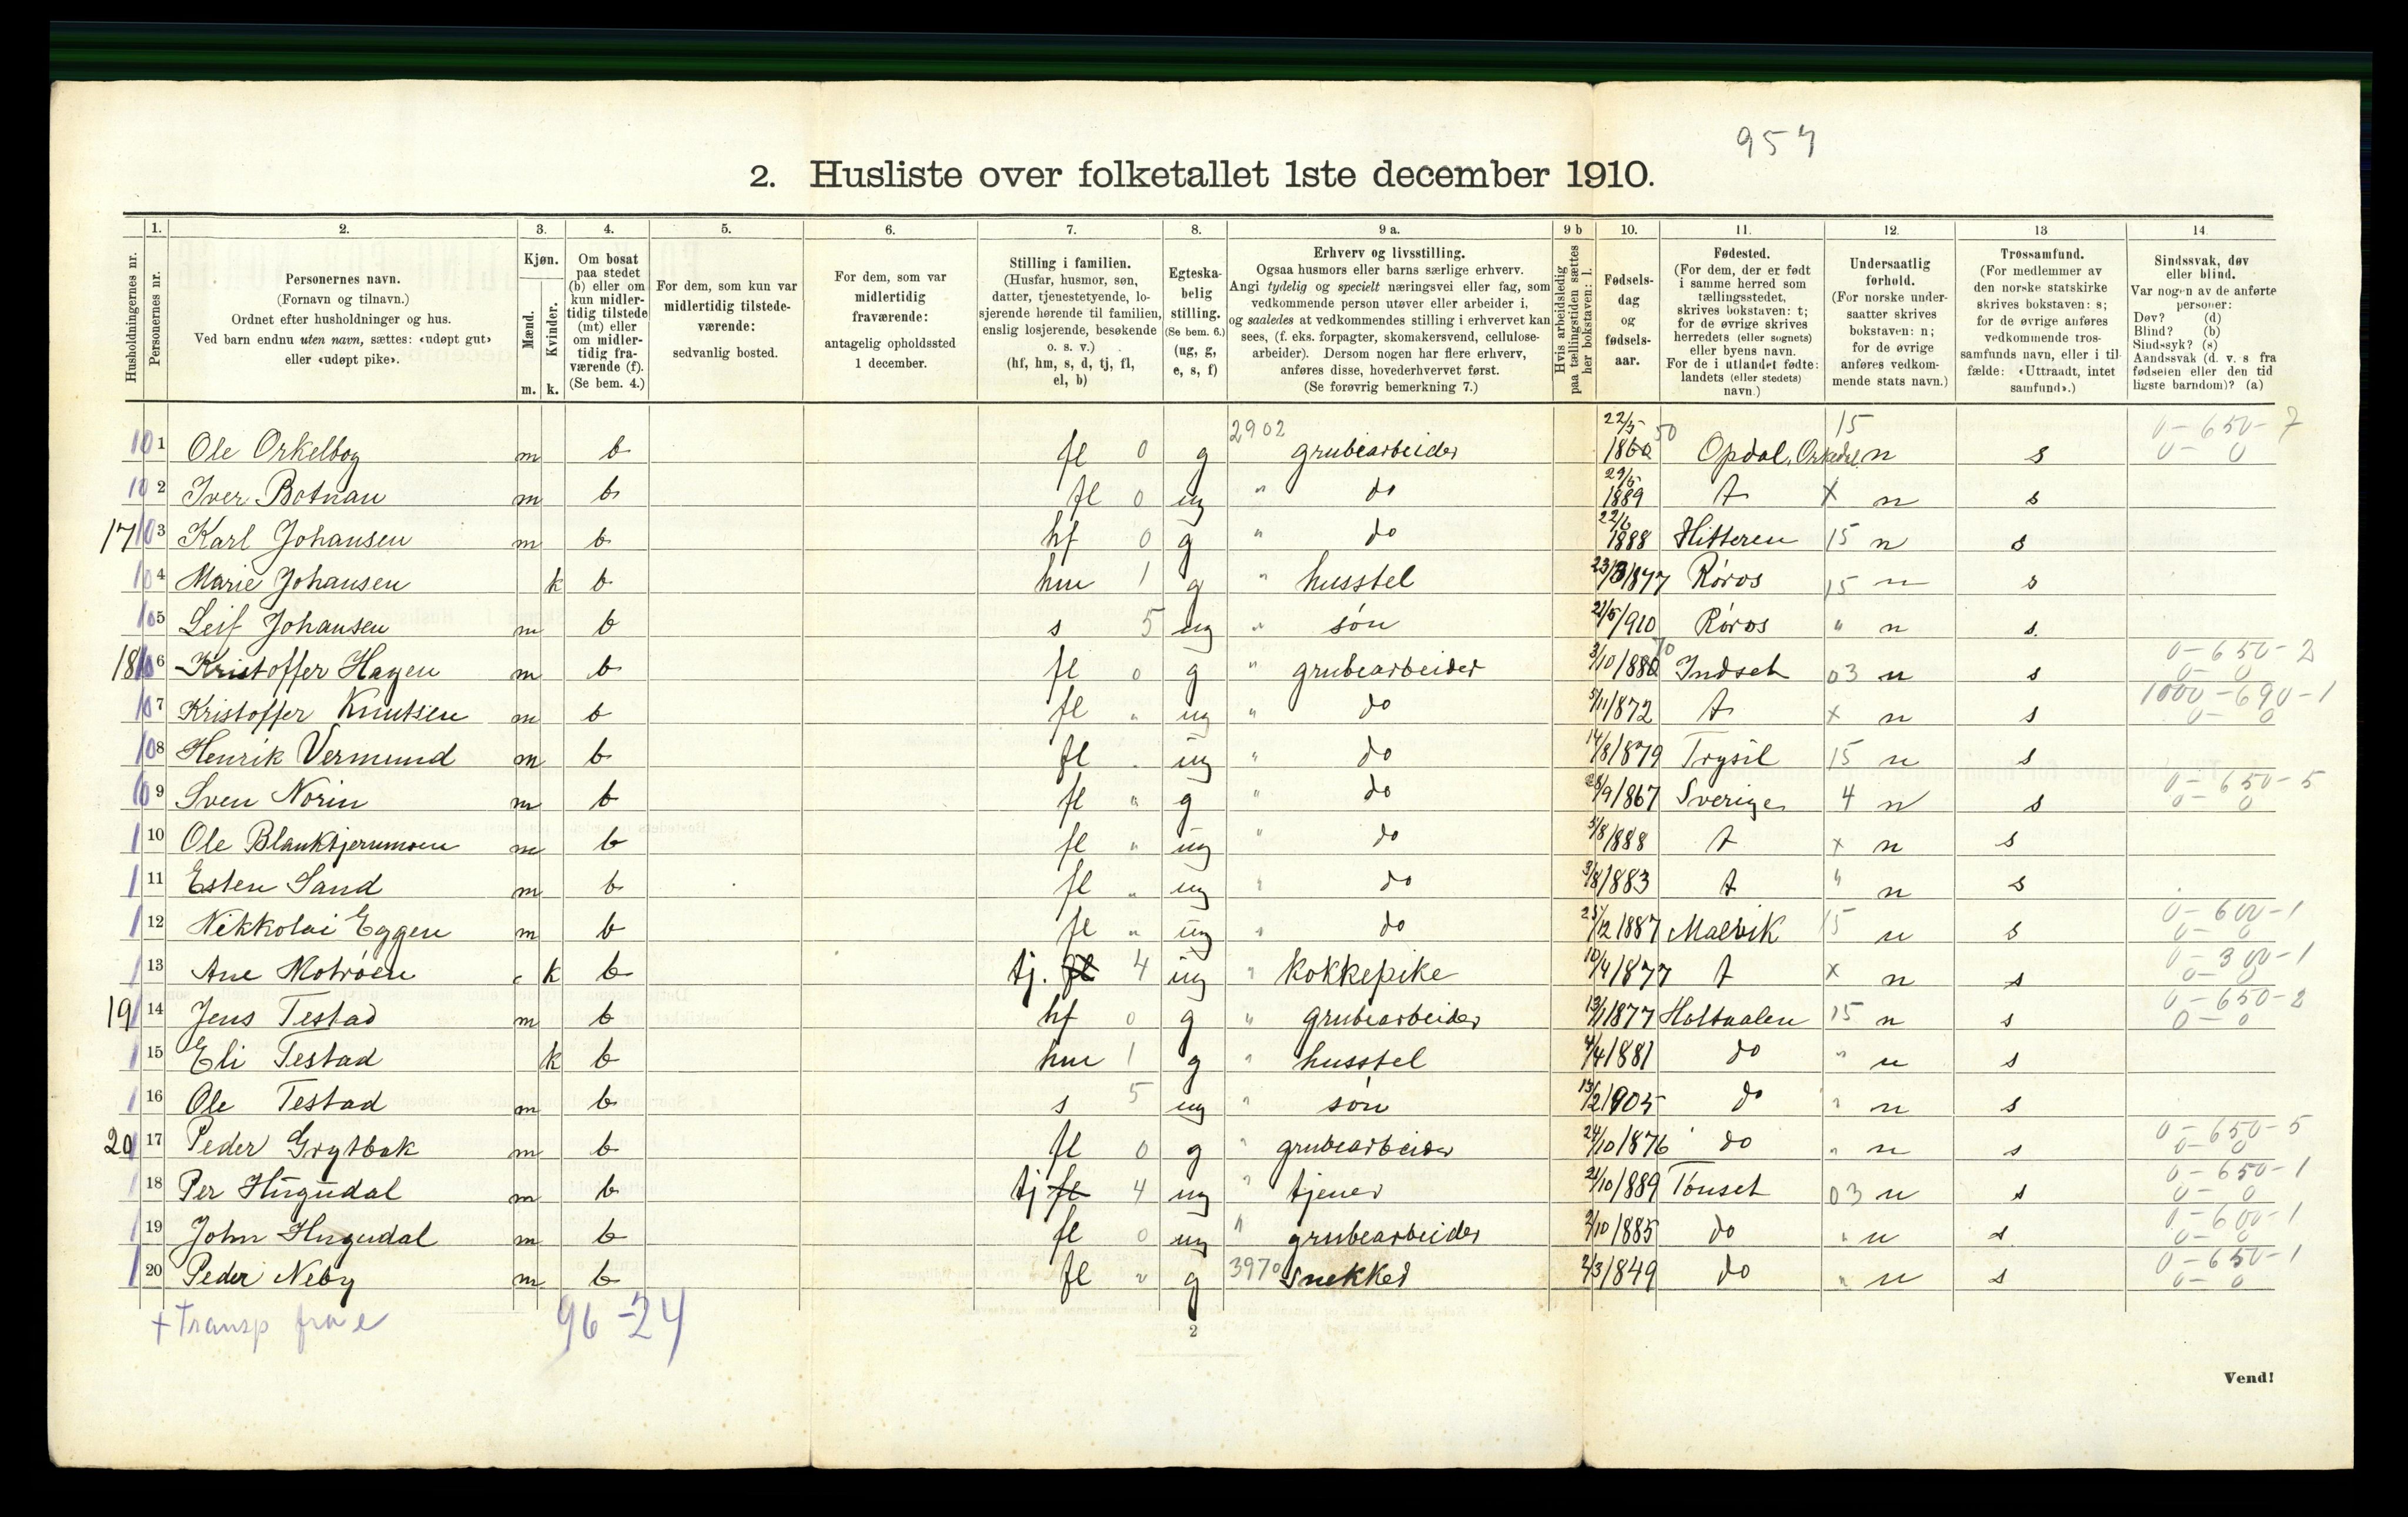 954
2. Husliste over folketallet 1ste december 1910.
Husholdningernes nr. | 1. Personernes nr. | 2. Personernes navn. (Fornavn og tilnavn.) Ordnet efter husholdninger og hus. Ved barn endnu uten navn, sættes: «udøpt gut» eller «udøpt pike». | 3. Kjøn. Mænd. m. Kvinder. k. | 4. Om bosat paa stedet (b) eller om kun midlertidig tilstede (mt) eller om midlertidig fraværende (f). (Se bem. 4.) | 5. For dem, som kun var midlertidig tilstedeværende: sedvanlig bosted. | 6. For dem, som var midlertidig fraværende: antagelig opholdssted 1 december. | 7. Stilling i familien. (Husfar, husmor, søn, datter, tjenestetyende, losjerende hørende til familien, enslig losjerende, besøkende o. s. v.) (hf, hm, s, d, tj, fl, el, b) | 8. Egteskabelig stilling. (Se bem. 6.) (ug, g, e, s, f) | 9 a. Erhverv og livsstilling. Ogsaa husmors eller barns særlige erhverv. Angi tydelig og specielt næringsvei eller fag, som vedkommende person utøver eller arbeider i, og saaledes at vedkommendes stilling i erhvervet kan sees, (f. eks. forpagter, skomakersvend, cellulosearbeider). Dersom nogen har flere erhverv, anføres disse, hovederhvervet først. (Se forøvrig bemerkning 7.) | 9 b Hvis arbeidsledig paa tællingstiden sættes her bokstaven: l. | 10. Fødselsdag og fødselsaar. | 11. Fødested. (For dem, der er født i samme herred som tællingsstedet, skrives bokstaven: t; for de øvrige skrives herredets (eller sognets) eller byens navn. For de i utlandet fødte: landets (eller stedets) navn.) | 12. Undersaatlig forhold. (For norske undersaatter skrives bokstaven: n; for de øvrige anføres vedkommende stats navn.) | 13 Trossamfund. (For medlemmer av den norske statskirke skrives bokstaven: s; for de øvrige anføres vedkommende trossamfunds navn, eller i tilfælde: «Uttraadt, intet samfund».) | 14 Sindssvak, døv eller blind. Var nogen av de anførte personer: Døv? (d) Blind? (b) Sindssyk? (s) Aandssvak (d. v. s. fra fødselen eller den tidligste barndom)? (a)
10 1 Ole Orkelbog m b fl 0 g 2902 grubearbeider 22/5 1860 50 Opdal, Orkedal 15 n s 0-650-7 0-0
10 2 Iver Botnan m b fl 0 ug " do 29/5 1889 t x n s
17 10 3 Karl Johansen m b hf 0 g " do 22/6 1888 Hitteren 15 n s
10 4 Marie Johansen k b hm 1 g " husstel 23/3 1877 Røros 15 n s
10 5 Leif Johansen m b s 5 ug " søn 21/5 1910 Røros " n s.
18 10 6 Kristoffer Hagen m b fl 0 g " grubearbeider 3/10 1880 70 Indset 03 n s 0-650-2 0-0
10 7 Kristoffer Knutsen m b fl " ug " do 5/11 1872 t x n s 1000-690-1 0-0
10 8 Henrik Vermund m b fl " ug " do 14/8 1879 Trysil 15 n s
10 9 Sven Norin m b fl " g " do 28/9 1867 Sverige 4 n s 0-650-5 0-0
1 10 Ole Blanktjernmoen m b fl " ug " do 5/8 1888 t x n s
1 11 Esten Sand m b fl " ug " do 3/8 1883 t " n s
1 12 Nikkolai Eggen m b fl " ug " do 25/12 1887 Malvik 15 n s 0-600-1 0-0
1 13 Ane Motrøen k b tj. fl 4 ug " kokkepike 10/4 1877 t x n s 0-300-1 0-0
19 1 14 Jens Testad m b hf 0 g " grubearbeider 13/1 1877 Holtaalen 15 n s 0-650-2 0-0
1 15 Eli Testad k b hm 1 g " husstel 4/4 1881 do " n s
1 16 Ole Testad m b s 5 ug " søn 13/2 1905 do " n s
20 1 17 Peder Grytbak m b fl 0 g " grubearbeider 24/10 1876 do " n s 0-650-5 0-0
1 18 Per Hugudal m b tj fl 4 ug " tjener 21/10 1889 Tønset 03 n s 0-650-1 0-0
1 19 John Hugudal m b fl 0 ug " grubearbeider 2/10 1885 do " n s 0-600-1 0-0
1 20 Peder Neby m b fl " g 3970 snekker 2/3 1849 do " n s 0-650-1 0-0
+ Transp fra e 96-24
2
Vend!